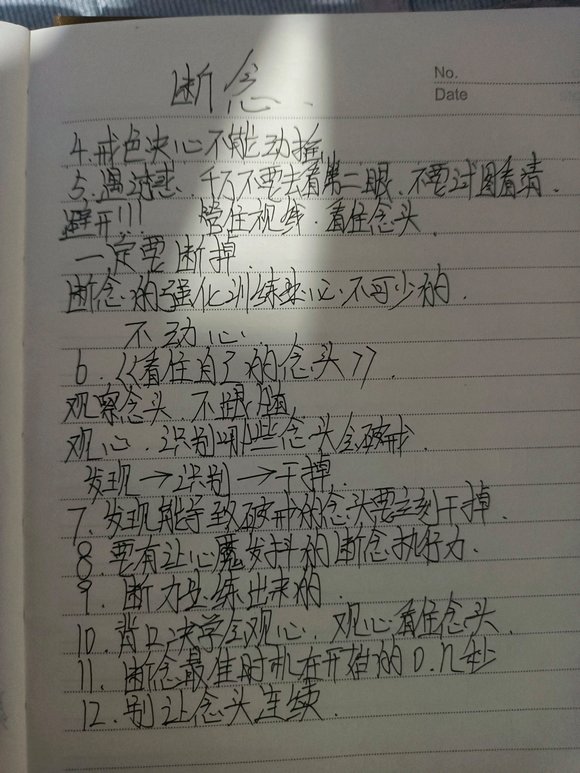 断念.
No.
Date
4.戒色决心不能动摇
5.遇诱惑.千万不要去看第二眼.不要试图看清.
避开!!! 管住视线.看住念头.
一定要断掉.
断念的强化训练 不可少的.
不动心.
6.《看住自己的念头》.
观察念头 不跟随
观心.识别哪些念头会破戒.
发现→识别→干掉.
7.发现能导致破戒的念头要立刻干掉.
8.要有让心魔发抖的断念执行力.
9.断力是练出来的.
10.背口诀学会观心.观心看住念头.
11.断念最佳时机在开始的0.几秒
12.别让念头连续.